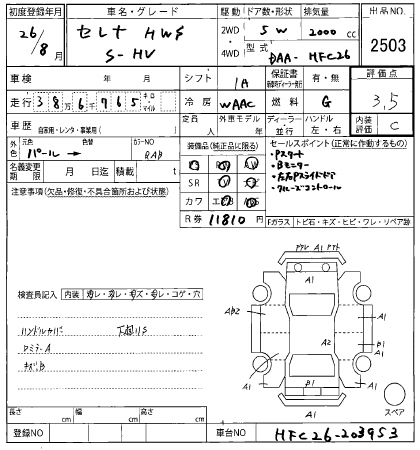 初度登録年月
26/8月
車名・グレード
セレナ HWS
S-HV
駆動 ドア数・形状 排気量
2WD 5 W 2000 cc
4WD 型式 DAA- HFC26
出品NO.
2503
車検 年 月
シフト IA
保証書 有・無
評価点
3.5
走行 38万6千765 キロ・マイル
冷房 WAAC
燃料 G
車歴 自家用・レンタ・事業用( )
定員 人
外車モデル 年
ディーラー・並行
ハンドル 左・右
内装評価 C
外色 元色 パール→ 色替
カラーNO QAB
名義変更期限 月 日迄
積載 t
装備品(純正品に限る)
SR
カワ
R券 11810 円
セールスポイント(正常に作動するもの)
・Pスタート
・Bモニター
・左右Pスライドドア
・クルーズコントロール
注意事項(欠品・修復・不具合箇所および状態)
Fガラス トビ石・キズ・ヒビ・ワレ・リペア跡
A1
A1
A1
A2
A1
B1
B1
A1
A1
A1
スペア
検査員記入 内装
コゲ・穴
ハンドルカバー
下廻りS
ロミラーA
キズB
長さ cm 幅 cm 高さ cm
登録NO
車台NO HFC26-203953